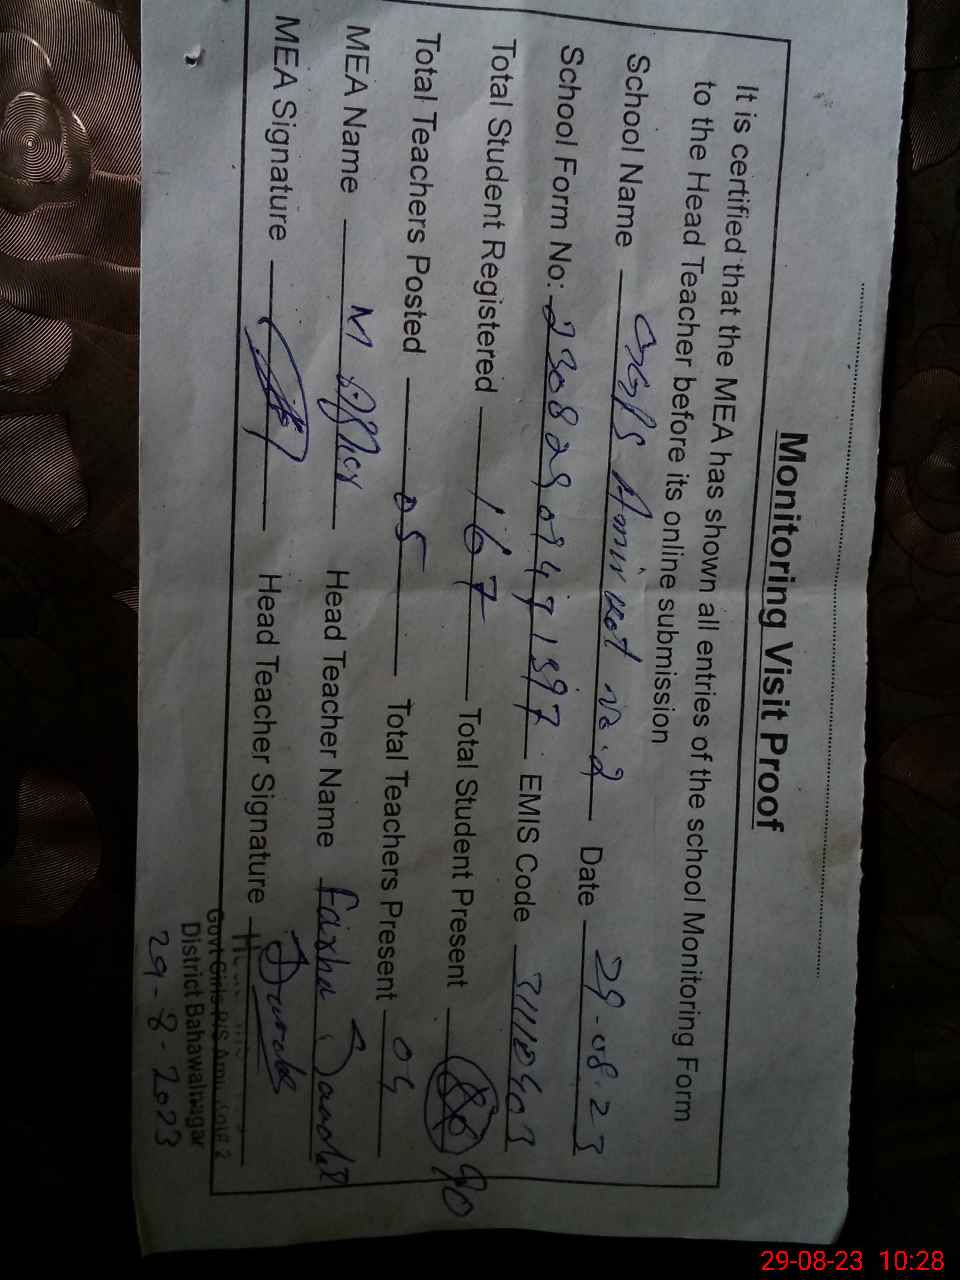 Monitoring Visit Proof
It is certified that the MEA has shown all entries of the school Monitoring Form
to the Head Teacher before its online submission
School Name GGPS Amir kot no.2 Date 29-08-23
School Form No: EMIS Code
Total Student Registered 167 Total Student Present 90
Total Teachers Posted 05 Total Teachers Present 04
MEA Name M Head Teacher Name
MEA Signature Head Teacher Signature
Govt Girls P/S
District Bahawalnagar
29-8-2023
29-08-23 10:28